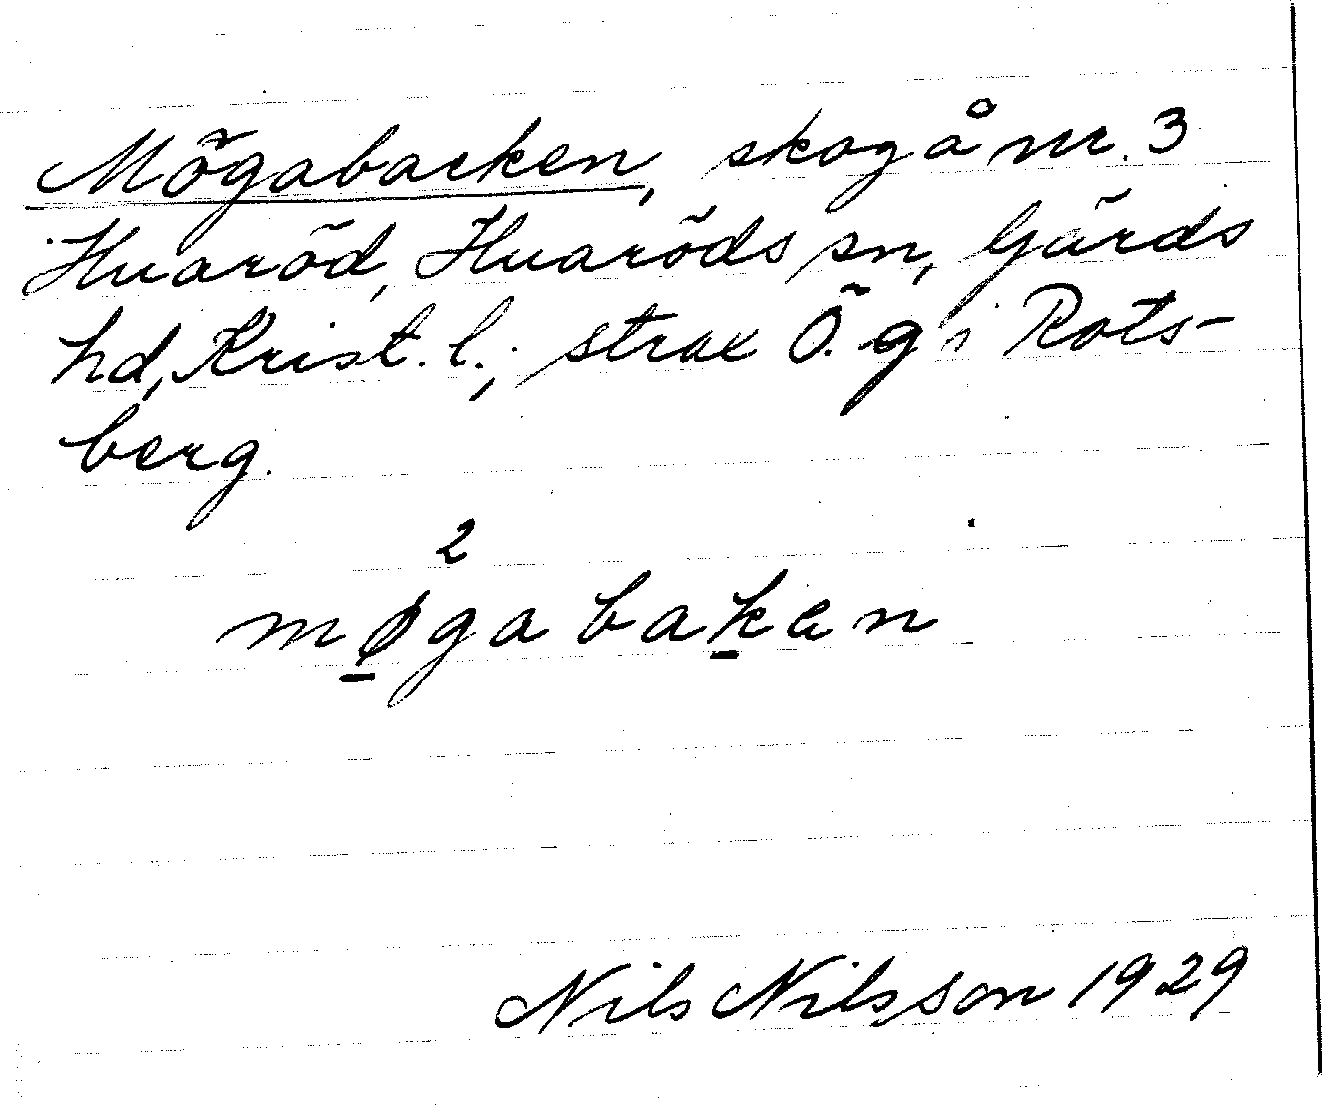 Mögabacken, skog å nr. 3
Huaröd, Huaröds sn, Gärds
hd, Krist. l.; strax Ö. g i Rots-
berg.
2
møgabaken
Nils Nilsson 1929